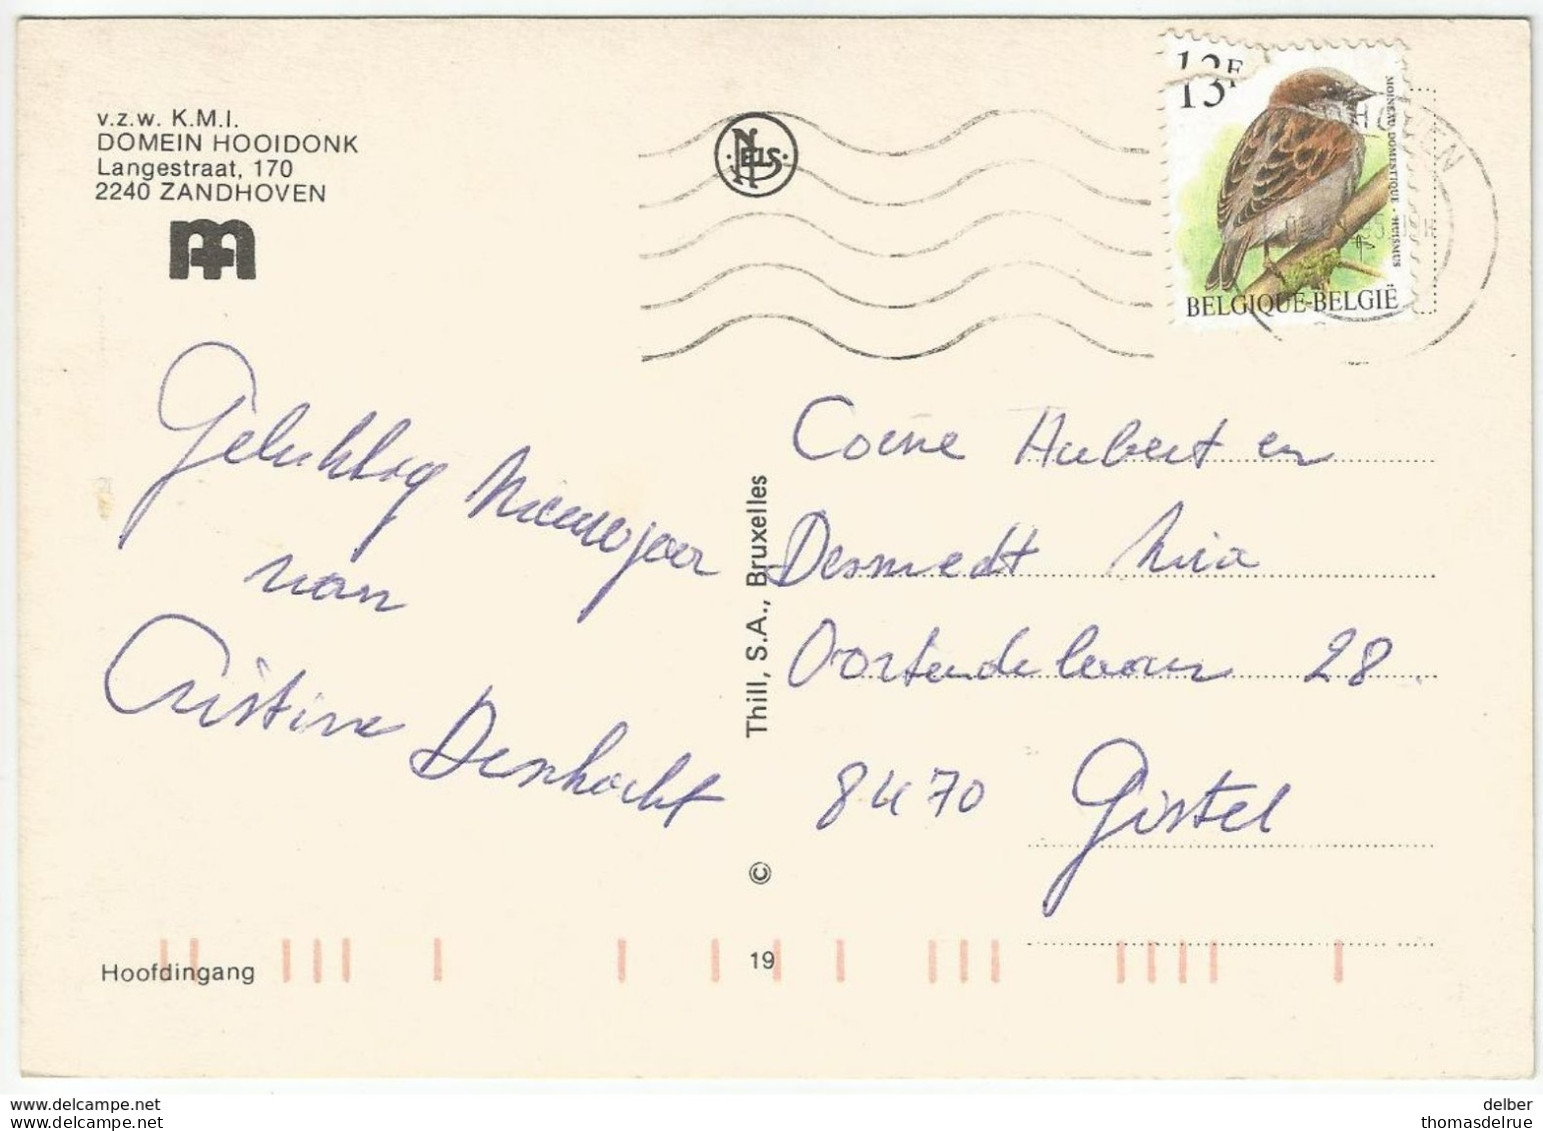 v.z.w. K.M.I.
DOMEIN HOOIDONK
Langestraat, 170
2240 ZANDHOVEN
NELS
13F
13F
MOINEAU DOMESTIQUE · HUISMUS
BELGIQUE-BELGIË
HOVEN
Gelukkig Nieuwjaar
van
Cristine Denhacht
Thill, S.A., Bruxelles
©
Coene Hubert en
Desmedt Mia
Oostendelaan 28.
8470 Gistel
Hoofdingang
19
delcampe.net
delber
delcampe.net
thomasdelrue